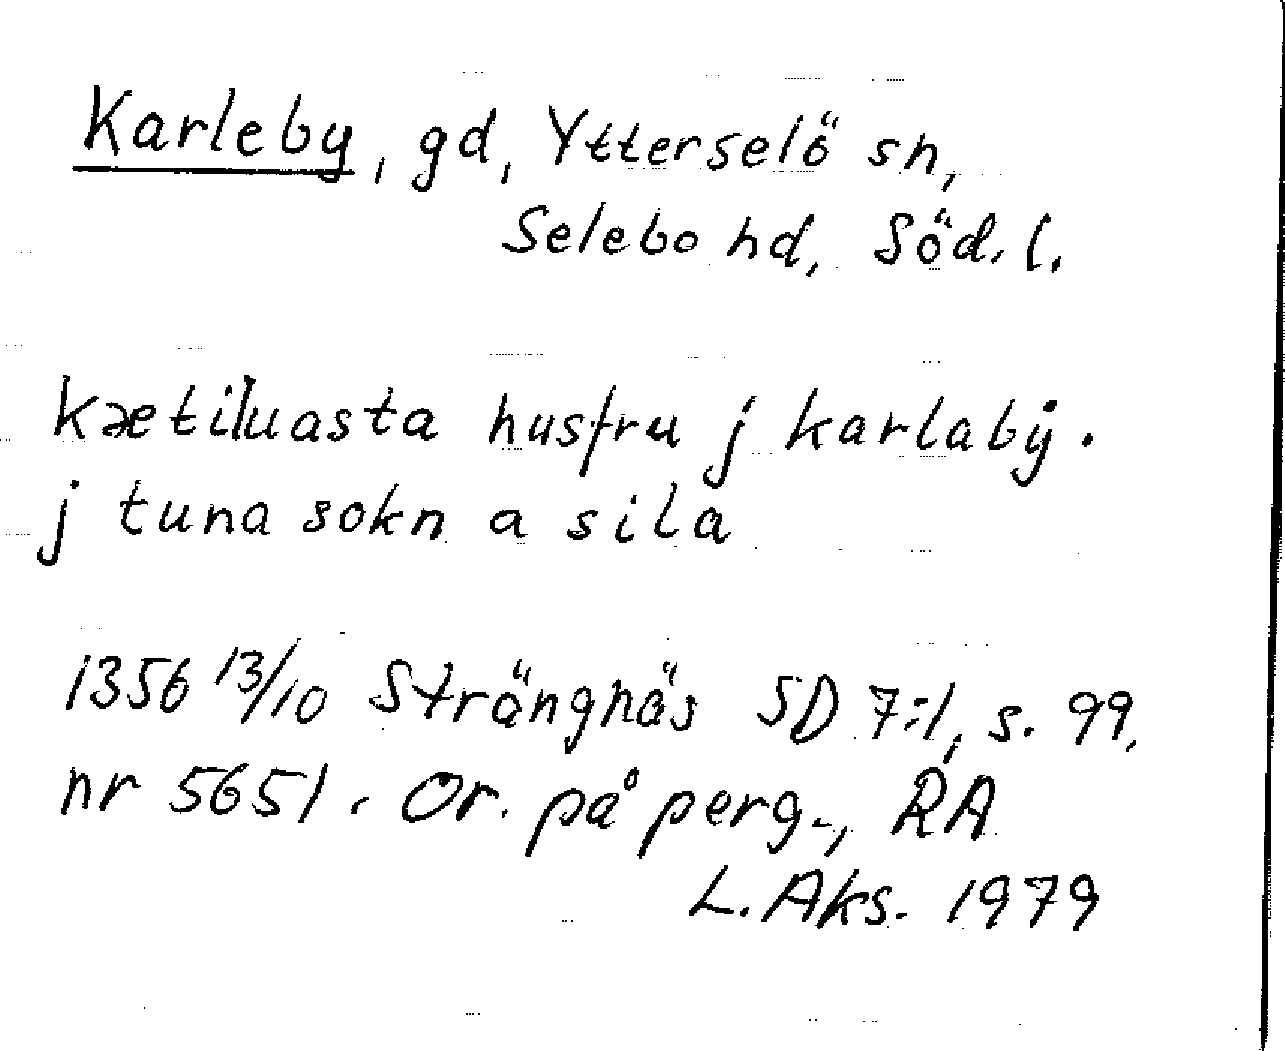 Karleby, gd, Ytterselö sn,
Selebo hd, Söd. l.
kætiluasta husfru j karlabẏ.
j tuna sokn a sila
1356 13/10 Strängnäs SD 7:1, s. 99,
nr 5651. Or. på perg., RA
L. Aks. 1979